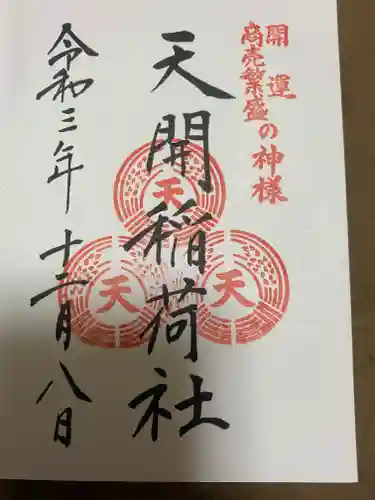 開運
商売繁盛の神様
天開稲荷社
天
天
天
令和三年十二月八日